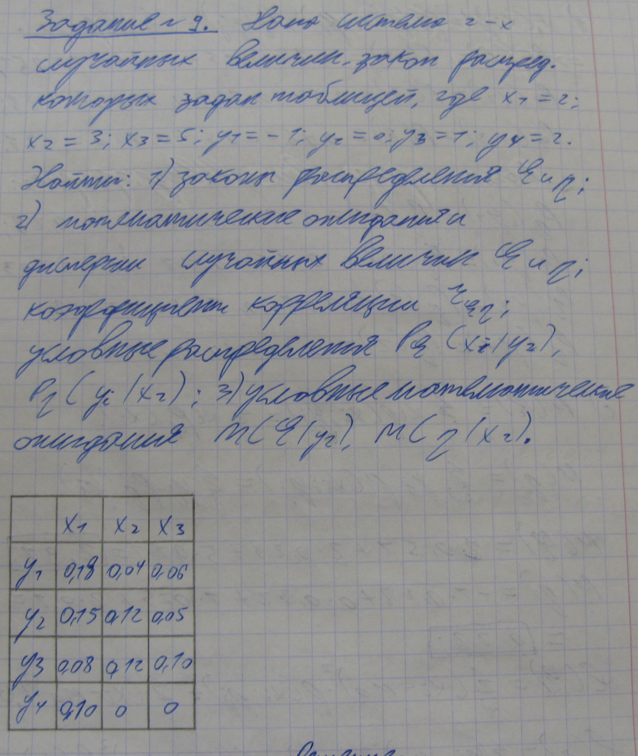 Задание № 9. Дана система 2-х
случайных величин, закон распред.
которых задан таблицей, где x1 = 2;
x2 = 3; x3 = 5; y1 = -1; y2 = 0; y3 = 1; y4 = 2.
Найти: 1) законы распределения ξ и η;
2) математические ожидания и
дисперсии случайных величин ξ и η;
коэффициент корреляции rξη;
условные распределения Pξ (xi/y2),
Pη (yi/x2); 3) условные математические
ожидания M(ξ/y2), M(η/x2).
x1 x2 x3
y1 0,18 0,04 0,06
y2 0,15 0,12 0,05
y3 0,08 0,12 0,10
y4 0,10 0 0